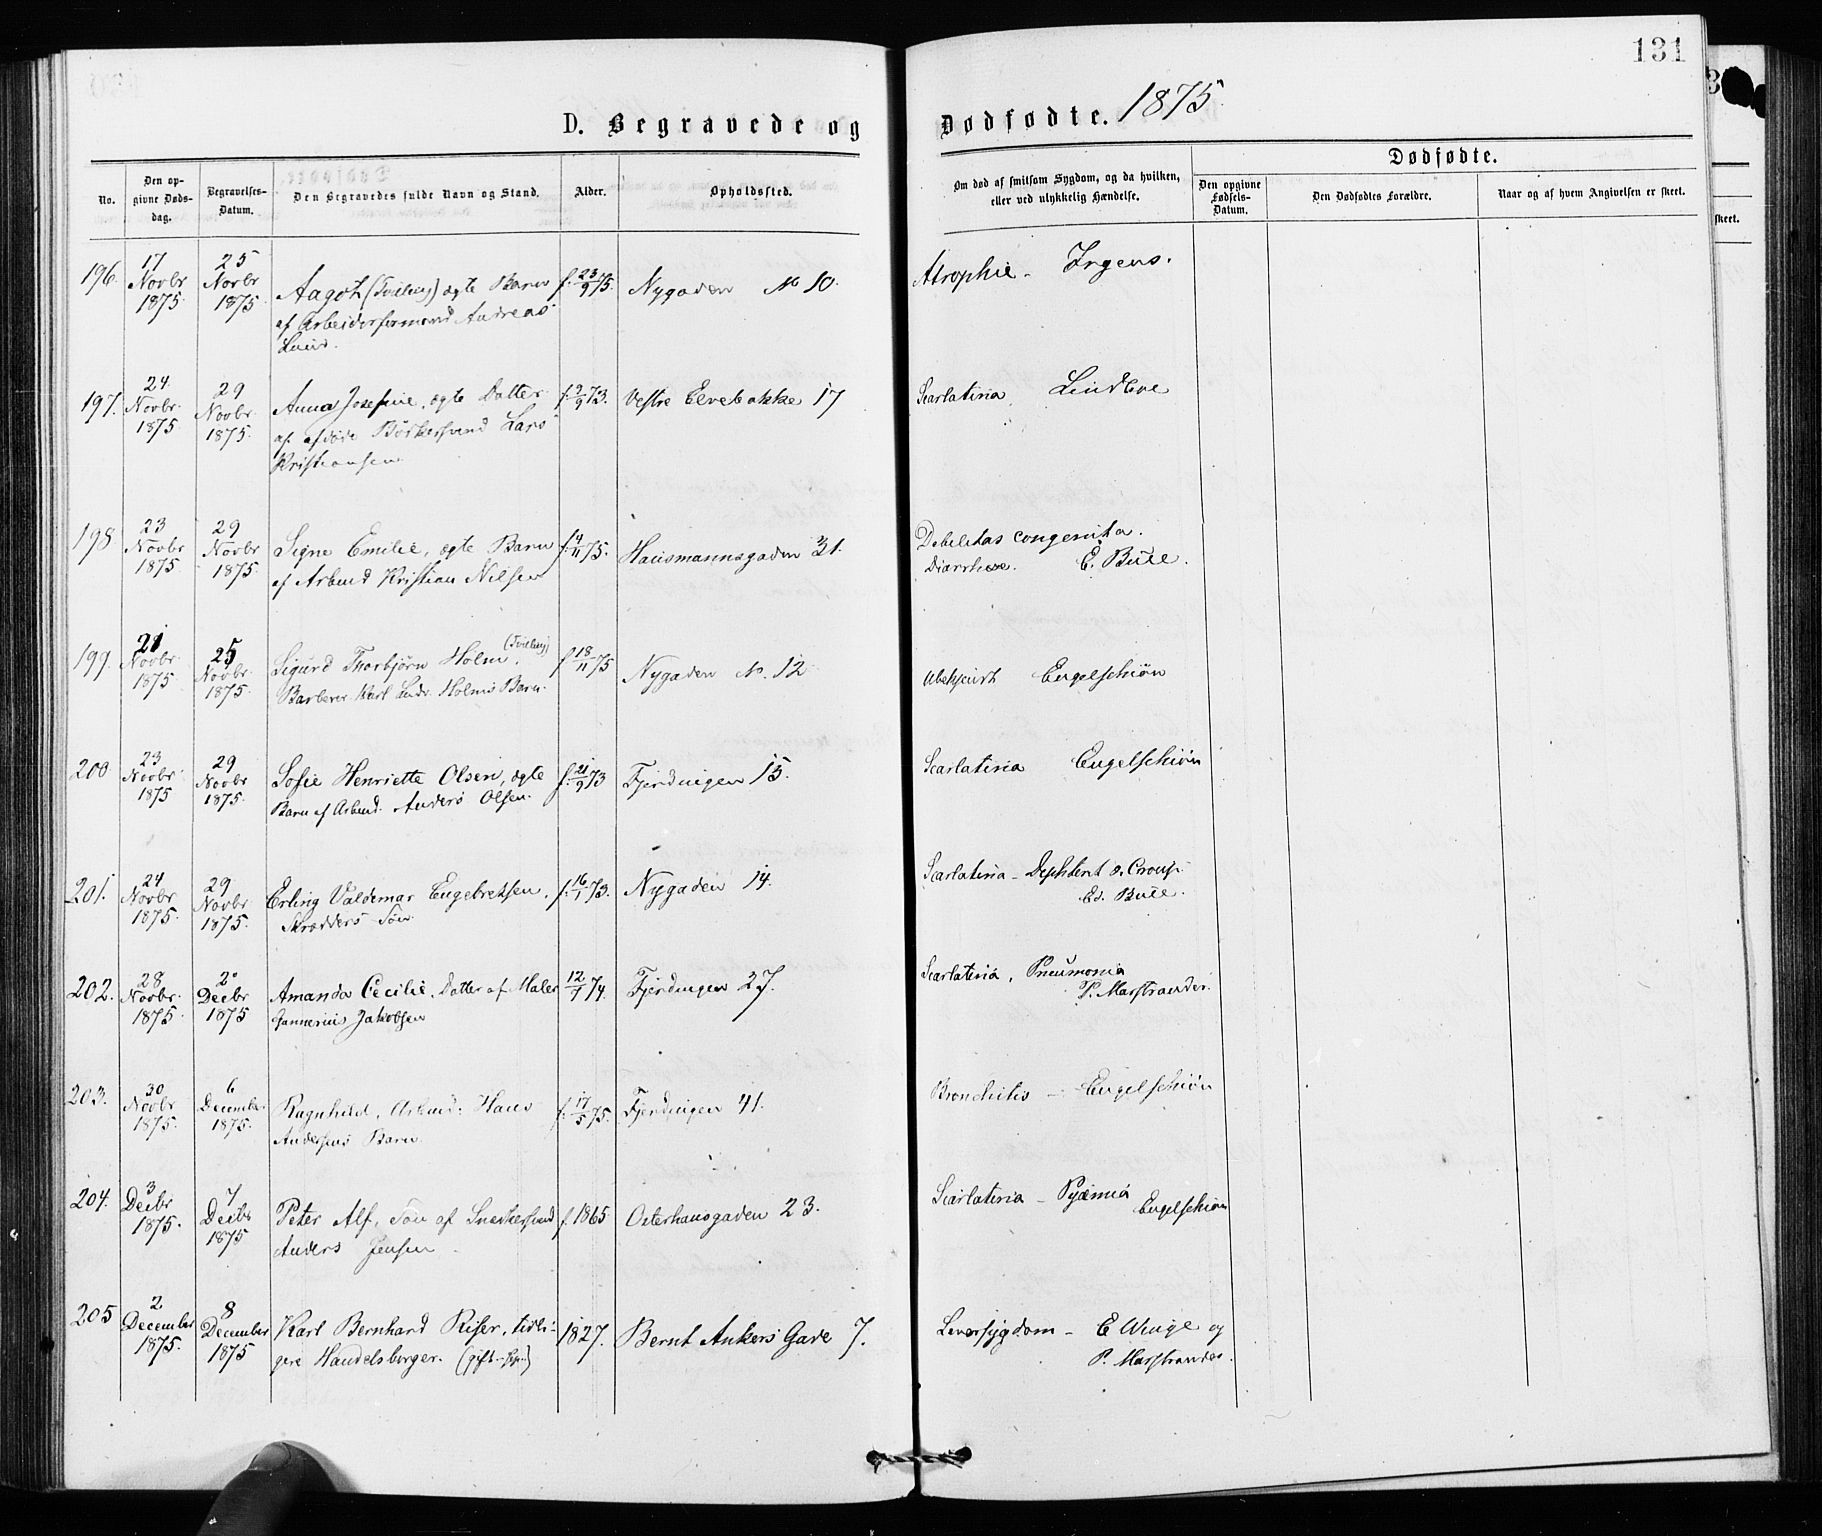 131
D. Begravede og Dødfødte. 1875
No.
Den opgivne Dødsdag.
Begravelses-Datum.
Den Begravedes fulde Navn og Stand.
Alder.
Opholdssted.
Om død af smitsom Sygdom, og da hvilken,
eller ved ulykkelig Hændelse.
Dødfødte.
Den opgivne Fødsels-Datum.
Den Dødfødtes Forældre.
Naar og af hvem Angivelsen er skeet.
skeet.
196. 17 Novbr 1875. 25 Novbr 1875. Aagot (Tvilling) ægte Barn f. 23/9 75. Nygaden No 10. Atrophie - Irgens.
af Arbeidsformand Andreas
Lund.
197. 24 Novbr. 1875. 29 Novbr. 1875. Anna Josefine, ægte Datter f. 2/9 73. Vestre Elvebakke 17 Scarlatina, Lindboe
af afdøde Bødkersvend Lars
Kristiansen
198 23 Novbr 1875. 29 Novbr 1875. Signe Emilie, ægte Barn f. 4/11 75. Hausmannsgaden 31. Debilitas congenita.
af Arbmd Kristian Nilsen Diarrhoe. E. Bull.
199. 21 Novbr. 1875. 25 Novbr. 1875. Sigurd Thorbjørn Holm (Tvilling), f. 18/11 75 Nygaden No. 12 Ubekjendt Engelschiøn
Barberer Karl Ludv. Holms Barn.
200 23 Novbr 1875 29 Novbr 1875. Sofie Henriette Olsen, ægte f. 21/9 73 Fjerdingen 15. Scarlatina Engelschiøn
Barn af Arbmd. Anders Olsen.
201. 24 Novbr. 1875. 29 Novbr. 1875. Erling Valdemar Engebretsen, f. 16/1 73. Nygaden 14. Scarlatina - Dephterit o. Croup.
Skrædders Søn Ed. Bull.
202. 28 Novbr. 1875. 2 Decbr 1875 Amanda Cecilie, Datter af Maler 12/7 74. Fjerdingen 27. Scarlatina, Pneumonia
Jakobsen P. Marstrander.
203. 30 Novbr 1875. 6 December 1875. Ragnhild, Arbmd. Hans f. 17/5 75. Fjerdingen 41. Bronchitis - Engelschiøn
Andersens Barn
204. 3 Decbr 1875. 7 Decbr 1875 Peter Alf, Søn af Snedkersvend f. 1865 Osterhausgaden 23. Scarlatina - Pyæmia
Anders Jensen Engelschiøn
205 2 December 1875. 8 December 1875 Karl Bernhard Riser, tidli- 1827. Bernt Ankers Gade 7. Leversygdom - E Winge og
gere Handelsborger. P. Marstrander.